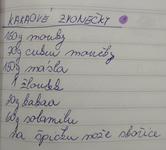 KAKAOVÉ ZVONEČKY
150g mouky
70g cukru moučky
150g másla
1 žloutek
30g kakaa
60g solamilu
na špičku nože skořice